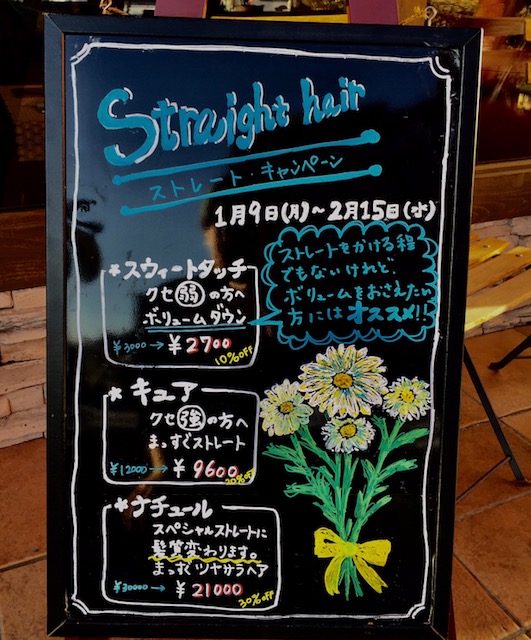 Straight hair
ストレート・キャンペーン
1月9日(月)～2月15日(水)
ストレートをかける程
でもないけれど、
ボリュームをおさえたい
方にはオススメ!!
*スウィートタッチ
クセ弱の方へ
ボリュームダウン
¥3000→¥2700
10%OFF
*キュア
クセ強の方へ
まっすぐストレート
¥12000→¥9600
20%OFF
*ナチュール
スペシャルストレートに
髪質変わります。
まっすぐツヤサラヘア
¥30000→¥21000
30%OFF